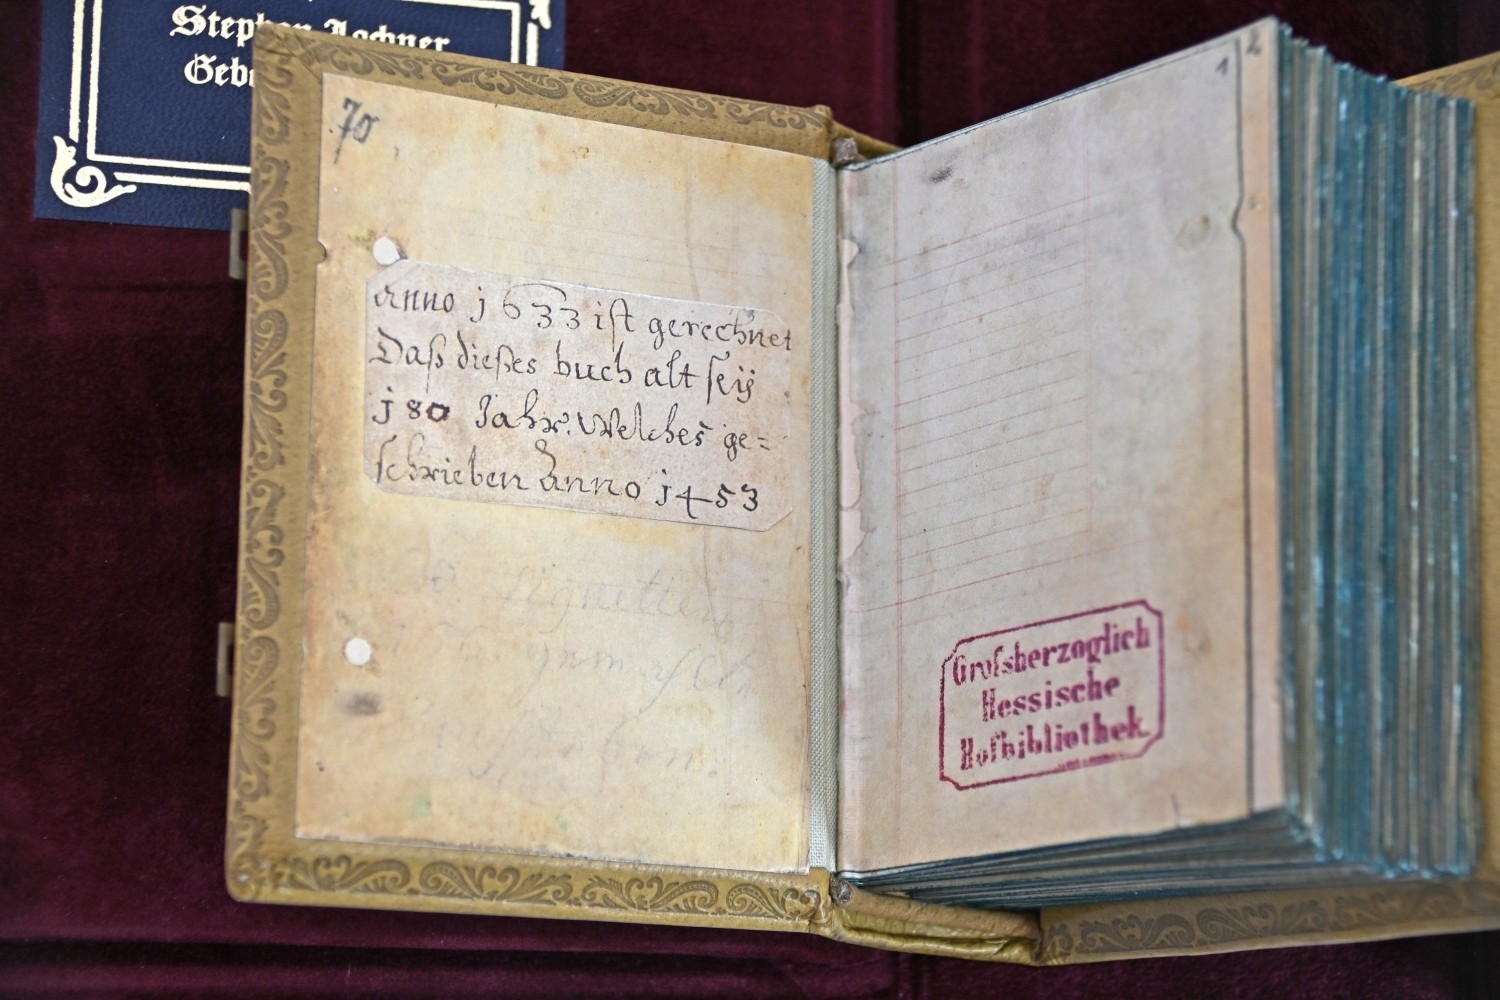 Stephan Lochner
Geb
70
Anno j633 ist gerechnet
Daß dießes buch alt seÿ
j80 Jahr. Welches ge=
schrieben Anno j453
1
2
Grossherzoglich
Hessische
Hofbibliothek